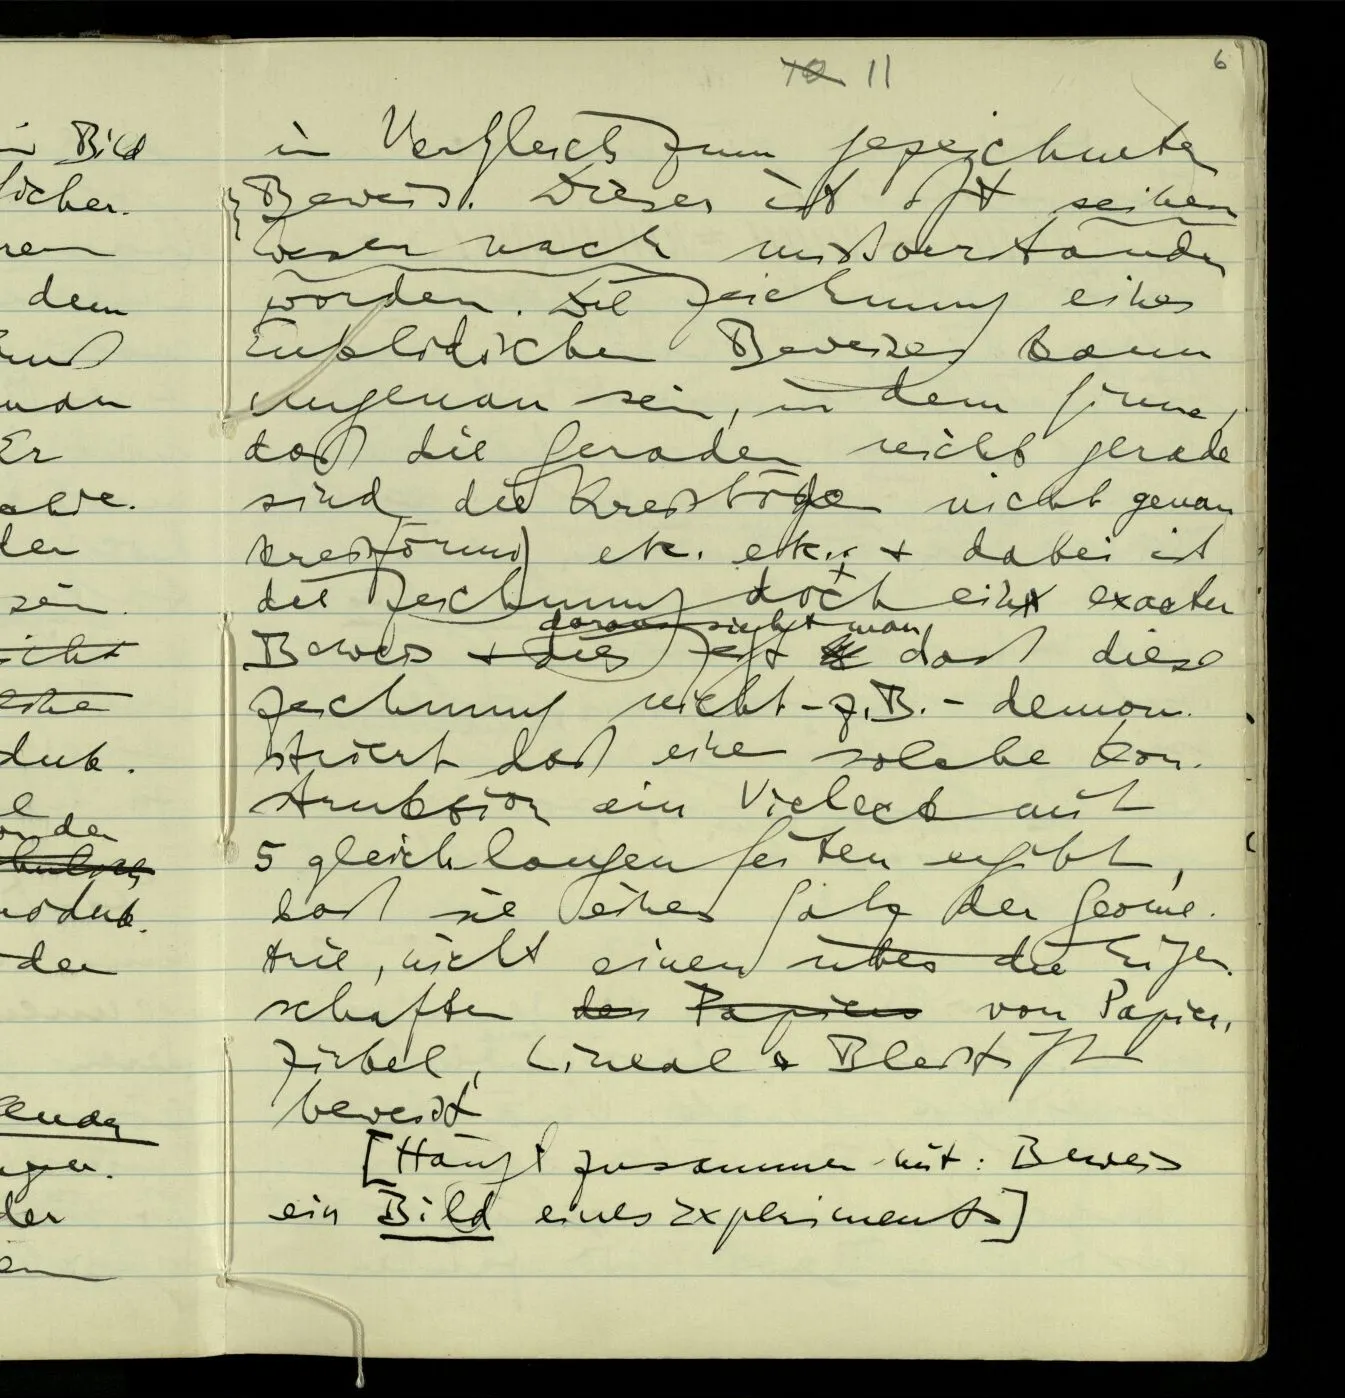 10 11
6
in Vergleich zum gezeichneten
Beweis. Dieser ist oft seinem
Wesen nach mißverstanden
worden. Die Zeichnung eines
Euklidischen Beweises kann
ungenau sein, in dem Sinne,
daß die Geraden nicht gerade
sind die Kreisbögen nicht genau
kreisförmig etc. etc. & dabei ist
die Zeichnung doch ein exacter
daraus sieht man
Beweis & dies zeigt daß diese
Zeichnung nicht – z.B. – demon-
striert daß eine solche Kon-
struktion ein Vieleck mit
5 gleichlangen Seiten ergibt,
daß sie einen Satz der Geome-
trie, nicht einen über die Eigen-
schaften des Papiers von Papier,
Zirkel, Lineal & Bleistift
beweist
[Hängt zusammen mit: Beweis
ein Bild eines Experiments]
Bild
licher.
dem
Er
der
sein
der
den
der